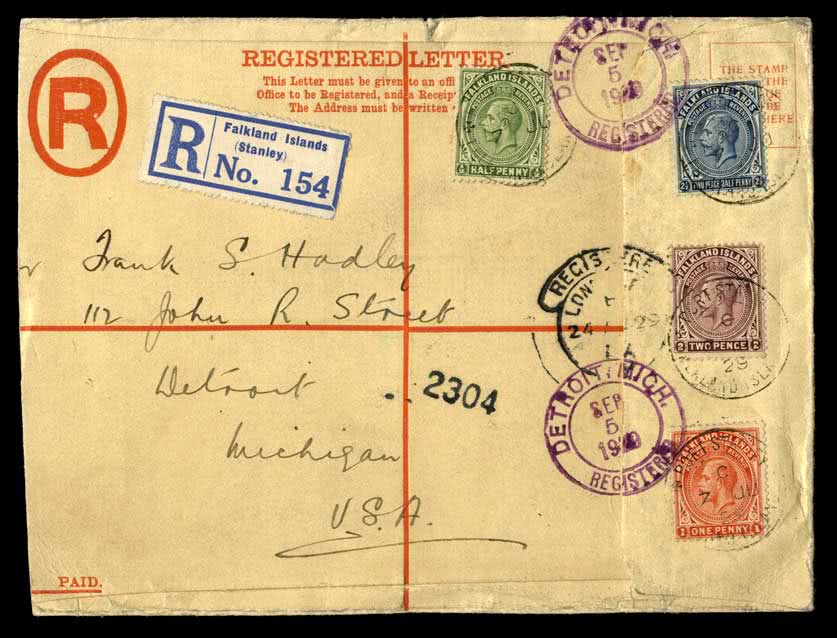 REGISTERED LETTER
This Letter must be given to an offi
Office to be Registered, and a Receip
The Address must be written
THE STAMP
THE
BE
R
R
Falkland Islands
(Stanley)
No. 154
FALKLAND ISLANDS
POSTAGE REVENUE
½ HALF PENNY ½
DETROIT, MICH.
SEP
5
REGISTERED
FALKLAND ISLANDS
2½ TWO PENCE HALF PENNY 2½
Frank S. Hadley
112 John R. Street
Detroit
Michigan
U.S.A.
REGISTERE
LON
24 29
FALKLAND ISLANDS
POSTAGE REVENUE
2 TWO PENCE 2
PORT ST
29
2304
DETROIT, MICH.
SEP
5
REGISTERED
FALKLAND ISLANDS
1 ONE PENNY 1
PAID.